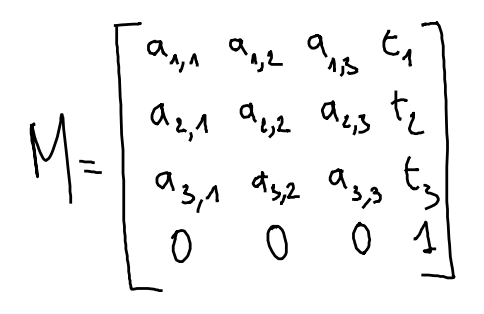 a1,1 a1,2 a1,3 t1
a2,1 a2,2 a2,3 t2
M=
a3,1 a3,2 a3,3 t3
0 0 0 1